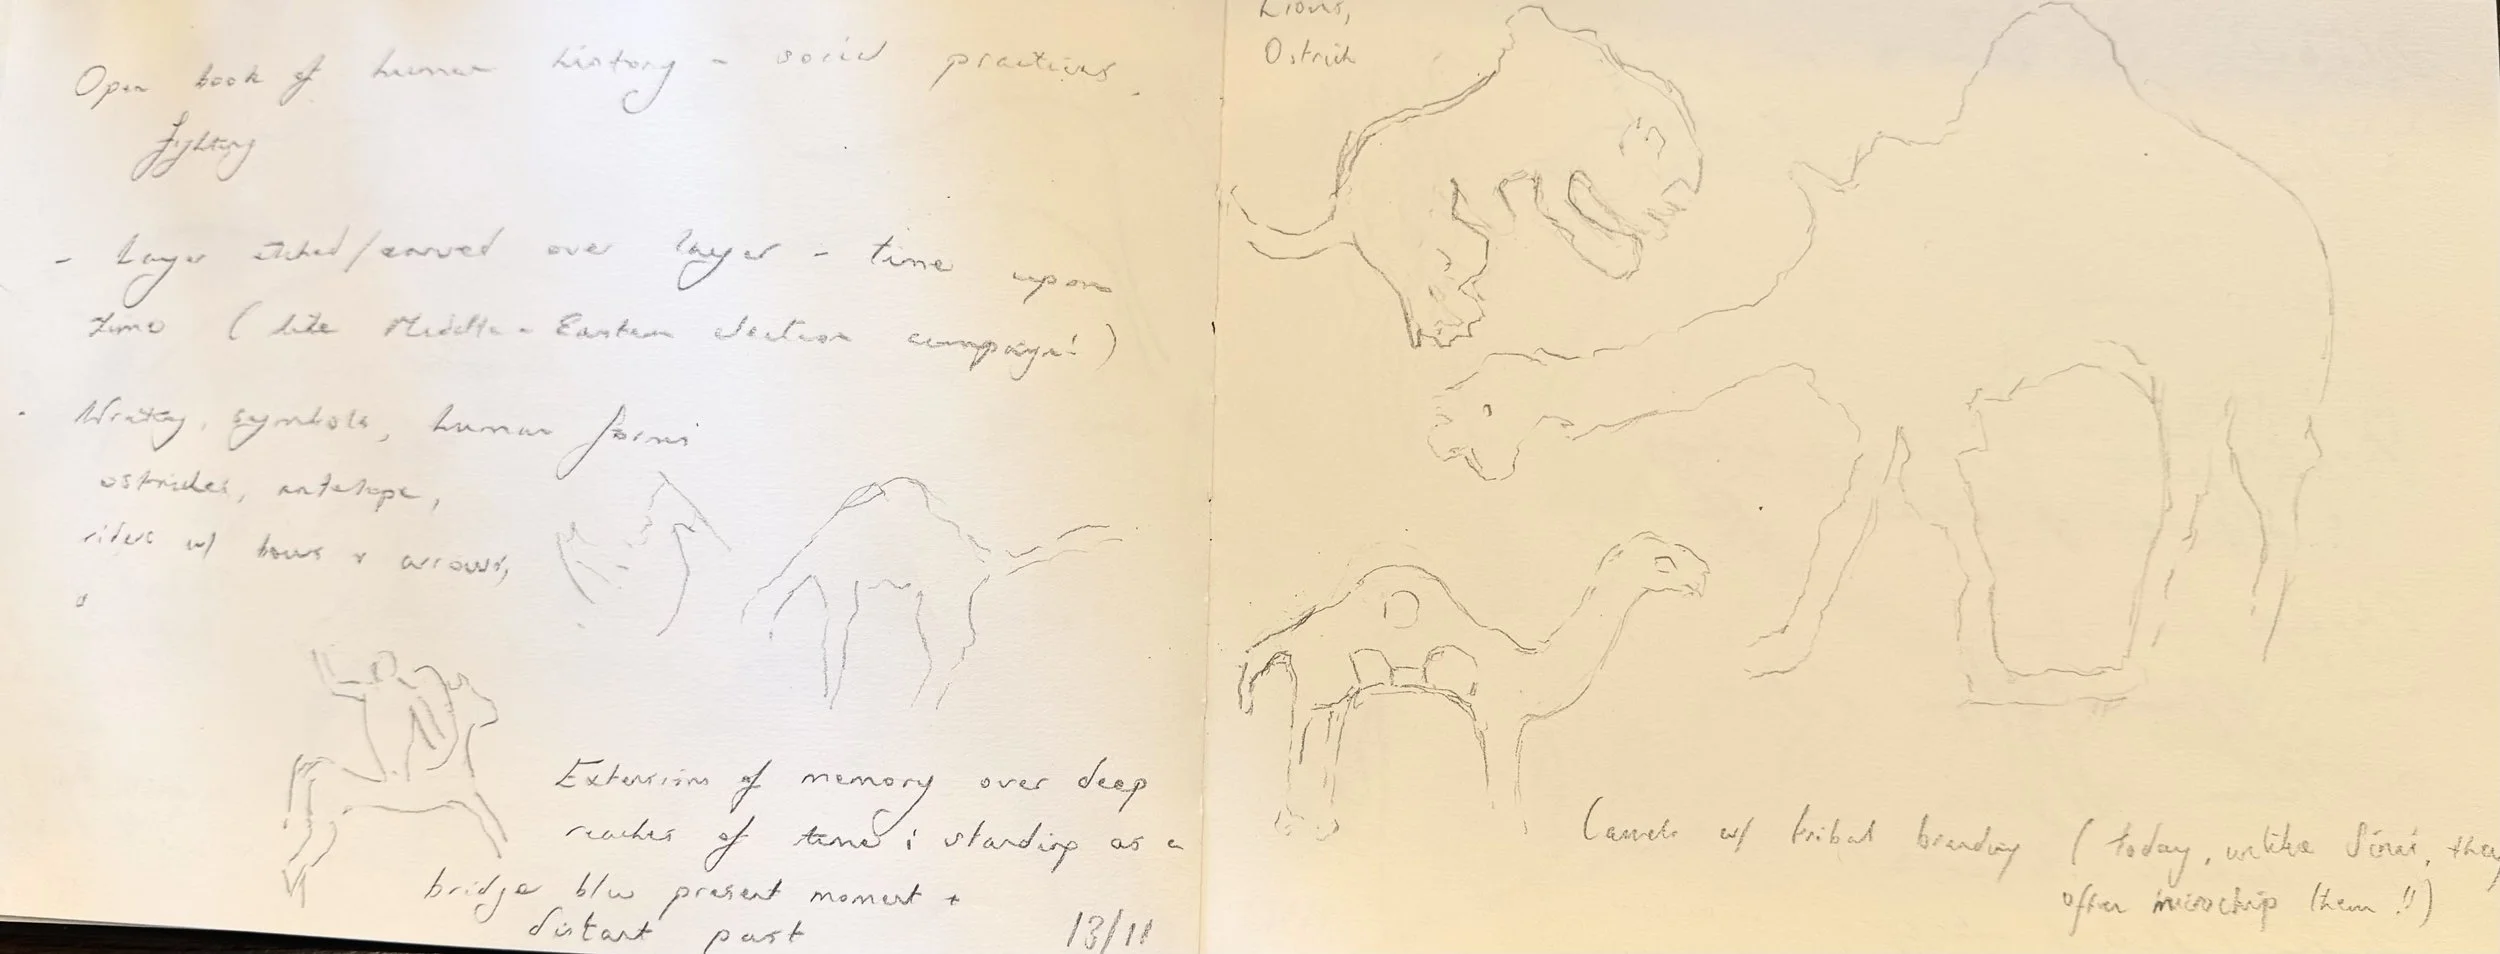 Open book of human history - social practices,
fighting
- Layer etched/carved over layer - time upon
time (like Middle-Eastern election campaign!)
- Writing, symbols, human forms
ostriches, antelope,
riders w/ bows + arrows,
Extension of memory over deep
reaches of time; standing as a
bridge b/w present moment +
distant past
13/11
Lions,
Ostrich
Camels w/ tribal branding (today, unlike Sinai, they
often microchip them!!)